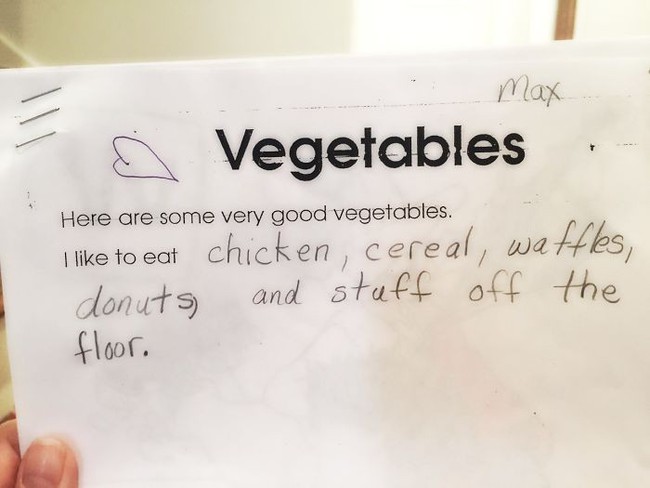 Max
Vegetables
Here are some very good vegetables.
I like to eat chicken, cereal, waffles,
donuts, and stuff off the
floor.